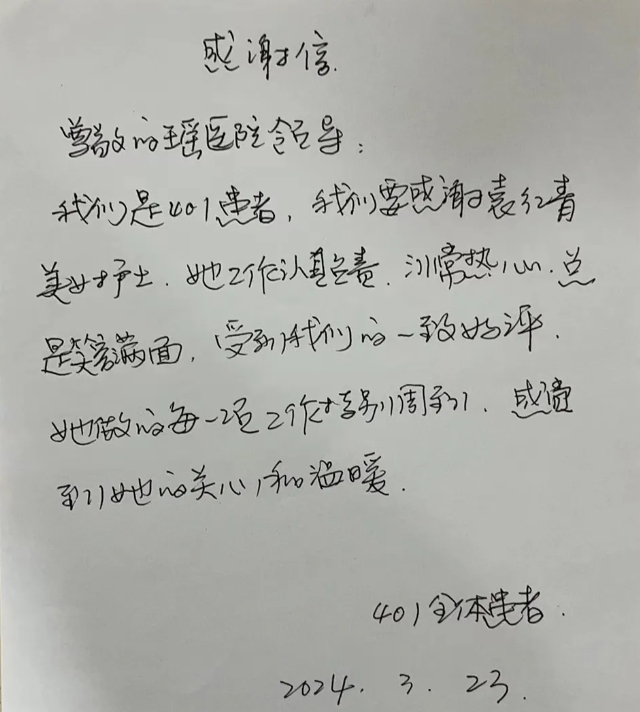 感谢信
尊敬的瑶医院领导：
我们是401患者，我们要感谢袁红青
美女护士，她工作认真负责，非常热心，总
是笑容满面，受到我们的一致好评，
她做的每一项工作特别周到，感觉
到她的关心和温暖．
401全体患者．
2024．3．23．